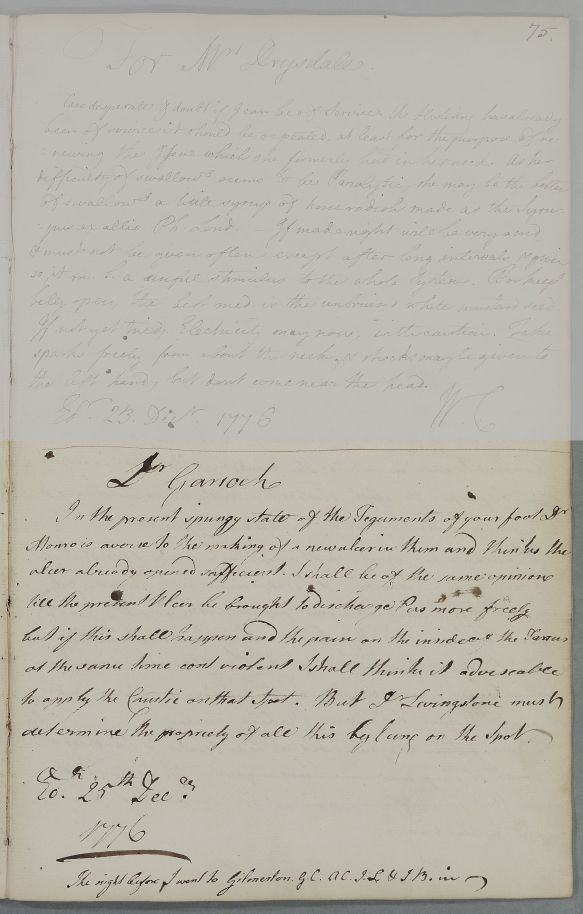 75.
For Mrs Drysdale.
Case desperate & doubt if I can be of Service. The blistering has already
been of service it should be repeated, at least for the purpose of re-
:newing the Issue which she formerly had in her neck. As her
difficulty of swallowg seems to be Paralytic, she may be the better
of swallowg a little syrup of horse radish made as the Syru-
:pus ex allio Ph. Lond. - If made right will be very acrid
& must not be given often except after long intervals, & given
so, it m. b. a useful stimulus to the whole System. For keepg
belly open, the best med. is the unbruised white mustard seed.
If not yet tried, Electricity may now, with caution. Take
sparks freely from about the neck, & shocks may be given to
the left hand, but dont come near the head.
Edr. 23. Decr. 1776 W. C
Dr Garioch
In the present spungy state of the Teguments of your foot Dr
Monro is averse to the making of a new ulcer in them and thinks the
ulcer already opened sufficient. I shall be of the same opinion
till the present Ulcer be brought to discharge Pus more freely
but if this shall happen and the pain on the inside of the Tarsus
at the same time cont violent I shall think it adviseable
to apply the Caustic on that Spot. But Dr Livingstone must
determine the propriety of all this by being on the Spot.
Edr. 25th Decr.
1776
The night before I went to Gilmerton. G C. A C. I. L & I B. in